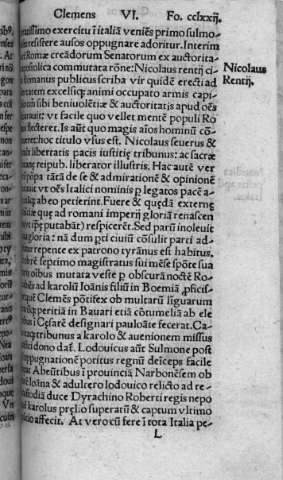 Clemens VI. Fo. cclxxij.
tissimo exercitu ĩ italiã veniẽs primo sulmo-
resistere ausos oppugnare adoritur. Interim
Romæ creãdorum Senatorum ex auctorita-
postolica commutata rõne: Nicolaus rentij ci-
Nicolaus
Rentij.
Romanus publicus scriba vir quidẽ erecti ad
tatem excelsiq; animi occupato armis capi-
sibi beniuolẽtiã & auctoritatẽ apud oẽs
: vt facile quo vellet mentẽ populi Ro
flecteret. Is aũt quo magis aĩos hominũ cõ-
hoc titulo vsus est. Nicolaus seuerus &
libertatis pacis iustitiæ tribunus: ac sacræ
reipub. liberator illustris. Hæc autẽ ver
tãtã de se & admirationẽ & opinionẽ
vt oẽs Italici nominis p legatos pacẽ a-
q; ab eo petierint. Fuere & quędã externę
quę ad romani imperij gloriã renascen
putabãt) respicerẽt. Sed parũ inoleuit
gloria: nã dum pti ciuiũ cõsulit parti ad-
repente ex patrono tyrãnus est habitus.
septimo magistratus sui mẽse spõte sua
oĩbus mutata veste p obscurã noctẽ Ro-
ad karolũ Ioãnis filiũ in Boemiã pficis-
quẽ Clemẽs põtifex ob multarũ liguarum
peritiã in Bauari etiã cõtumeliã ab ele
ĩ Cęsarẽ designari pauloãte fecerat. Ca-
tribunus a karolo & auenionem missus
dono daf. Lodouicus aũt Sulmone post
oppugnationẽ poritus regnũ deĩceps facile
at Abeũtibus ĩ prouinciã Narbonẽsem ob
Ioãna & adultero lodouico relicto ad re-
diã duce Dyrachino Roberti regis nepo
karolus prelio superatũ & captum vltimo
affecit. At vero cũ fere ĩ tota Italia pe-
L